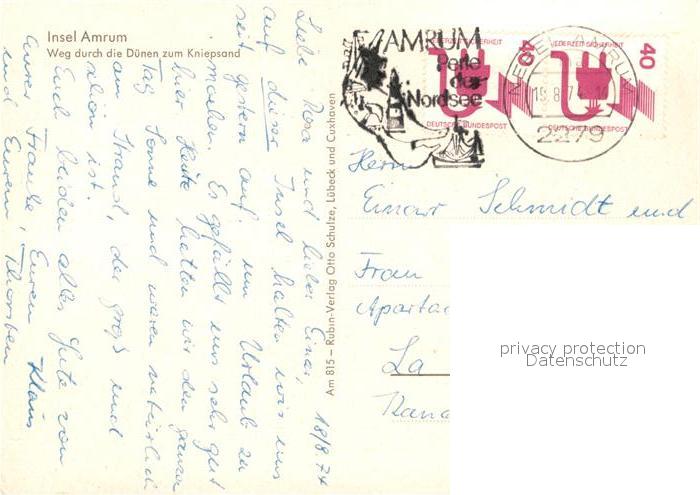 Insel Amrum
Weg durch die Dünen zum Kniepsand
18/8.74
Liebe Rosa und lieber Einar,
auf dieser Insel halten wir uns
seit gestern auf um Urlaub zu
machen. Es gefällt uns sehr gut
hier. Heute hatten wir den ganzen
Tag Sonne und waren natürlich
am Strand, der groß und
schön ist.
Euch beiden alles Gute von
Eurer Frauke, Eurem Klaus
und Eurem Thorsten
Am 815 – Rubin-Verlag Otto Schulze, Lübeck und Cuxhaven
AMRUM
Perle
der
Nordsee
JEDERZEIT SICHERHEIT
40
DEUTSCHE BUNDESPOST
JEDERZEIT SICHERHEIT
40
DEUTSCHE BUNDESPOST
NEBEL, AMRUM
19.8.74
2279
Herrn
Einar Schmidt und
Frau
Aparta
La
Kana
privacy protection
Datenschutz